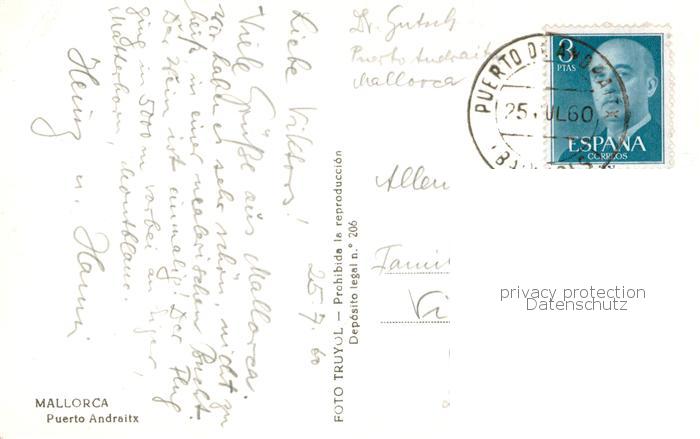 25.7.60
Liebe Viktors!
Viele Grüße aus Mallorca.
Wir haben es sehr schön, nicht zu
heiß in einer malerischen Bucht.
Der Wein ist einmalig! Der Flug
ging in 5000 m vorbei an Eiger,
Matterhorn, Montblanc.
Heinz u. Hanni
MALLORCA
Puerto Andraitx
FOTO TRUYOL — Prohibida la reproducción
Depósito legal n.° 206
Dr. Gutsch
Puerto Andraitx
Mallorca
3
PTAS
ESPAÑA
CORREOS
PUERTO DE ANDRAITX
25 JUL 60
Allen
Famil
Vi
privacy protection
Datenschutz